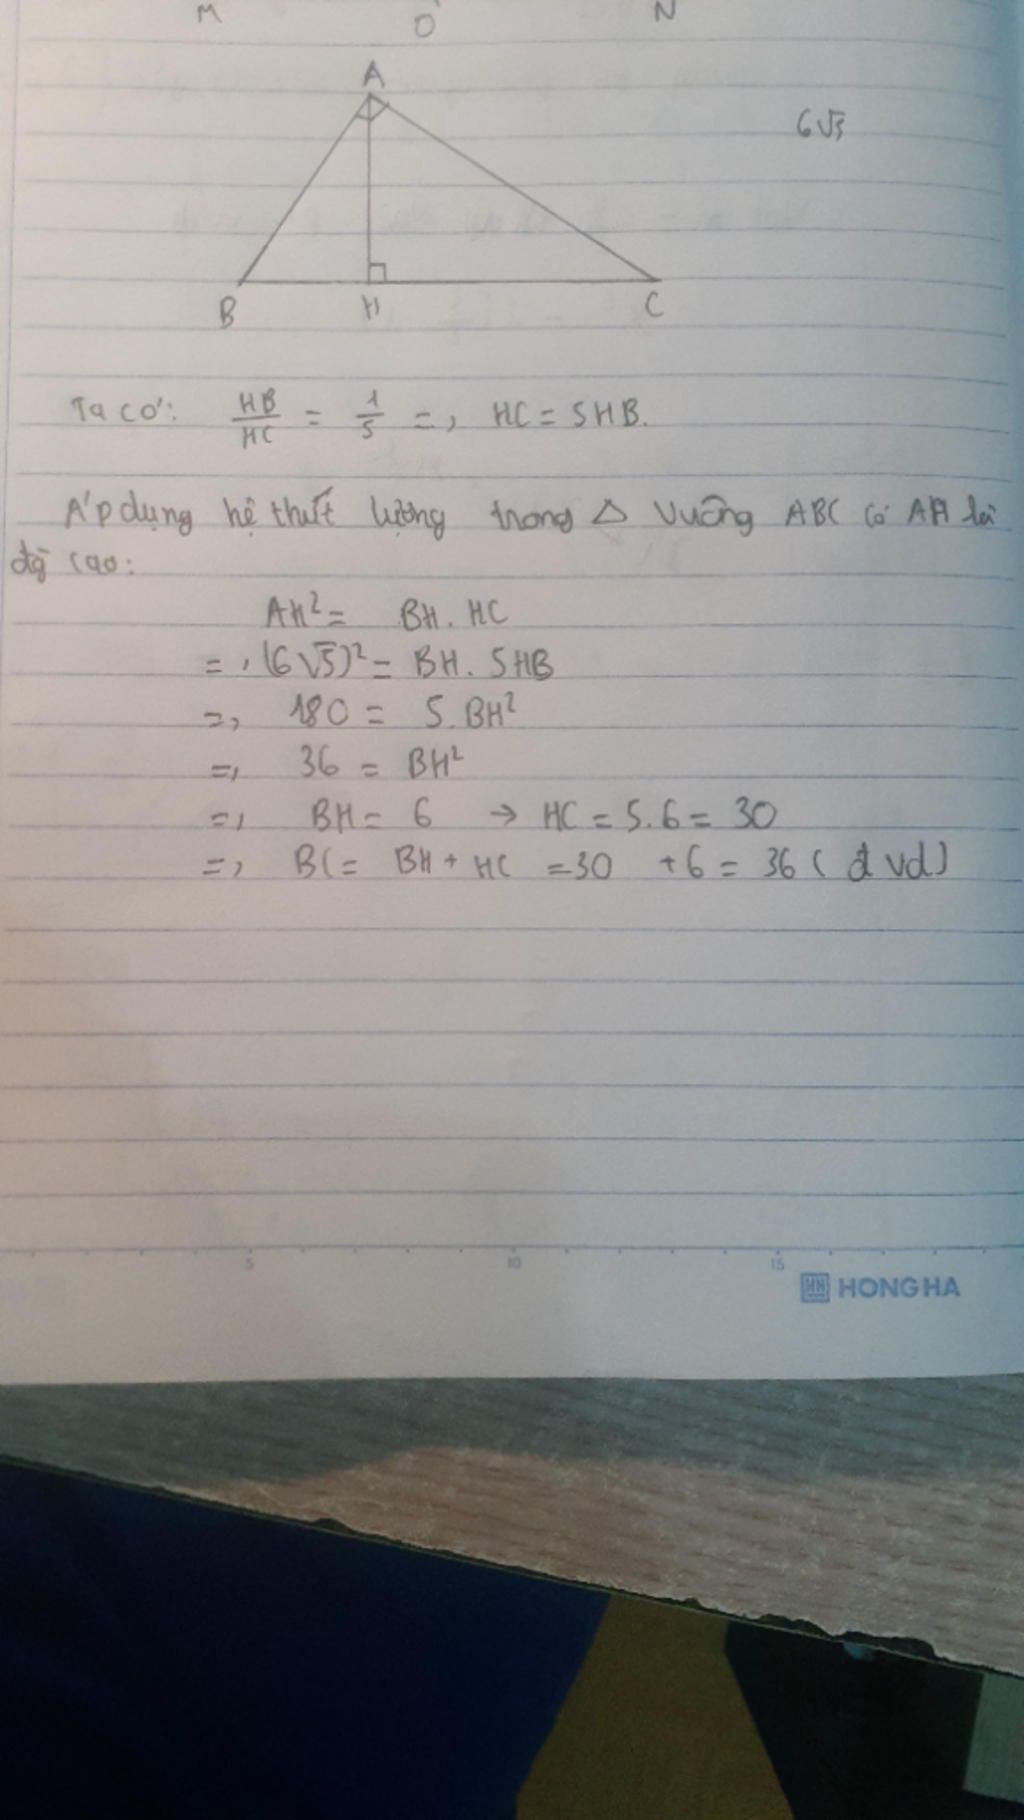 M O N
A
6√5
B H C
Ta có: HB/HC = 1/5 =, HC = 5HB.
Áp dụng hệ thức lượng trong Δ vuông ABC có AH là
độ cao:
AH² = BH. HC
=, (6√5)² = BH. 5HB
=, 180 = 5.BH²
=, 36 = BH²
=, BH = 6 → HC = 5.6 = 30
=, BC = BH + HC = 30 + 6 = 36 (đvd)
5 10 15
HONG HA